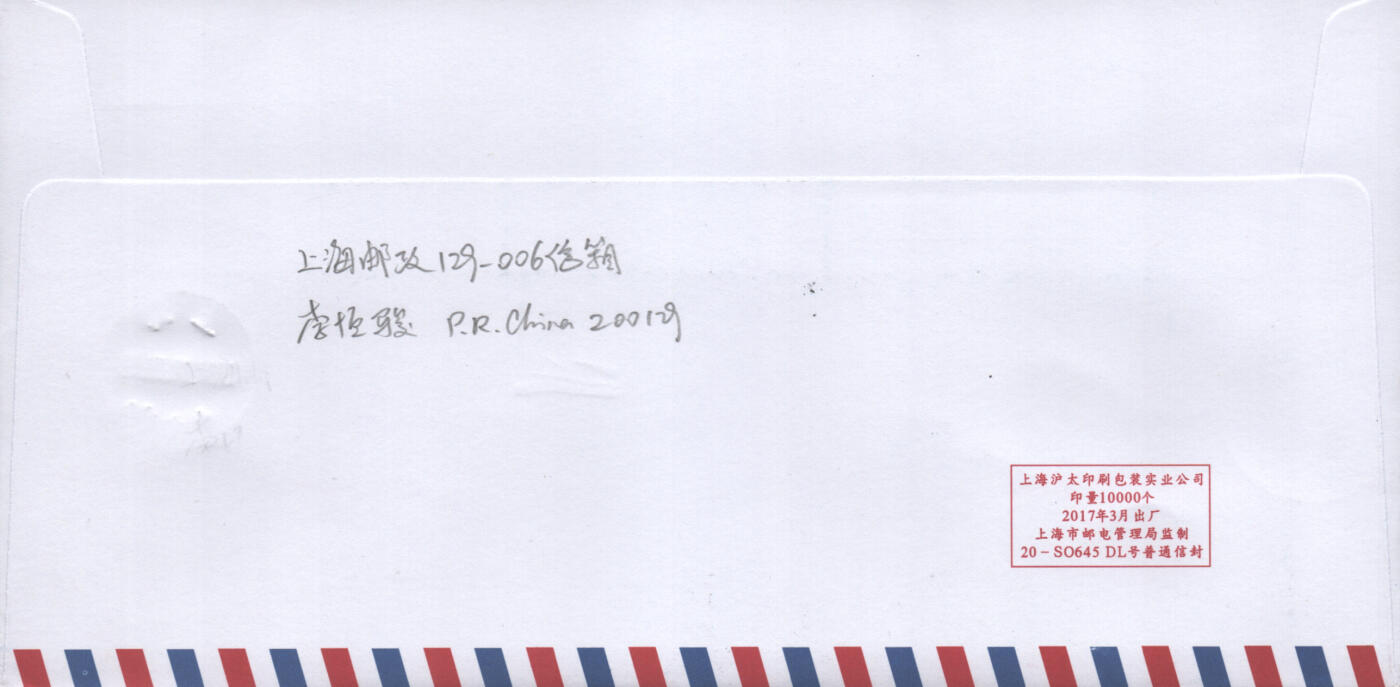 上海邮政129-006信箱
李恒骏 P.R.China 200129
上海沪太印刷包装实业公司
印量10000个
2017年3月出厂
上海市邮电管理局监制
20－SO645 DL号普通信封